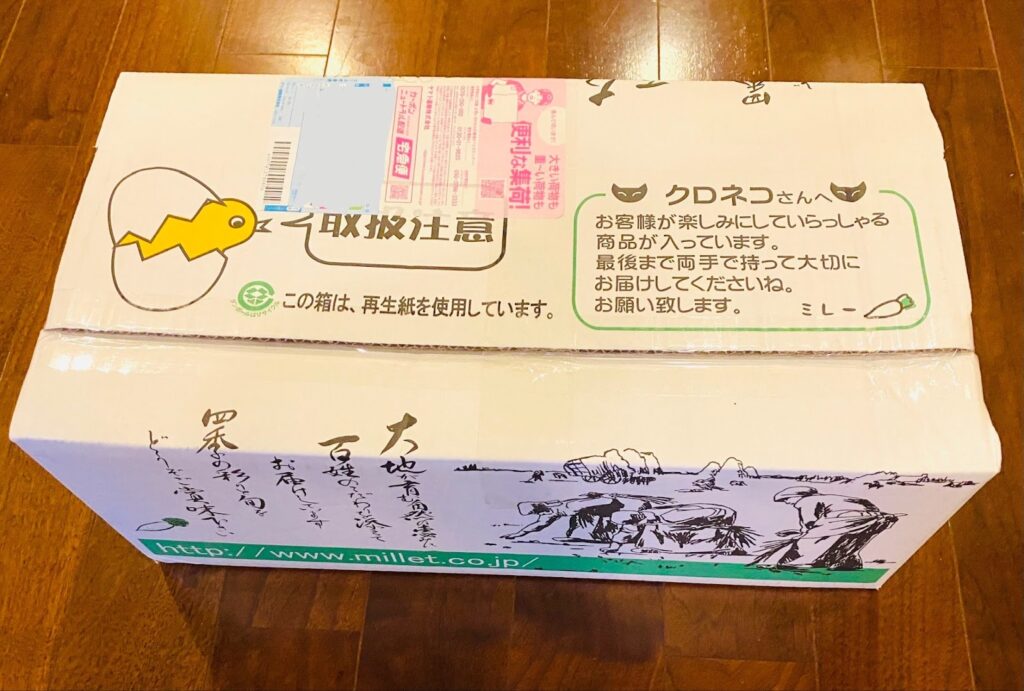 取扱注意
この箱は、再生紙を使用しています。
カーボン
ニュートラル配送
宅急便
ヤマト運輸株式会社
便利な集荷!
大きい荷物も
重〜い荷物も
クロネコさんへ
お客様が楽しみにしていらっしゃる
商品が入っています。
最後まで両手で持って大切に
お届けしてくださいね。
お願い致します。
ミレー
大地が育む自然の恵みを
百姓の
お届けします
四季の彩りと旬を
どうぞご賞味下さい
http://www.millet.co.jp/